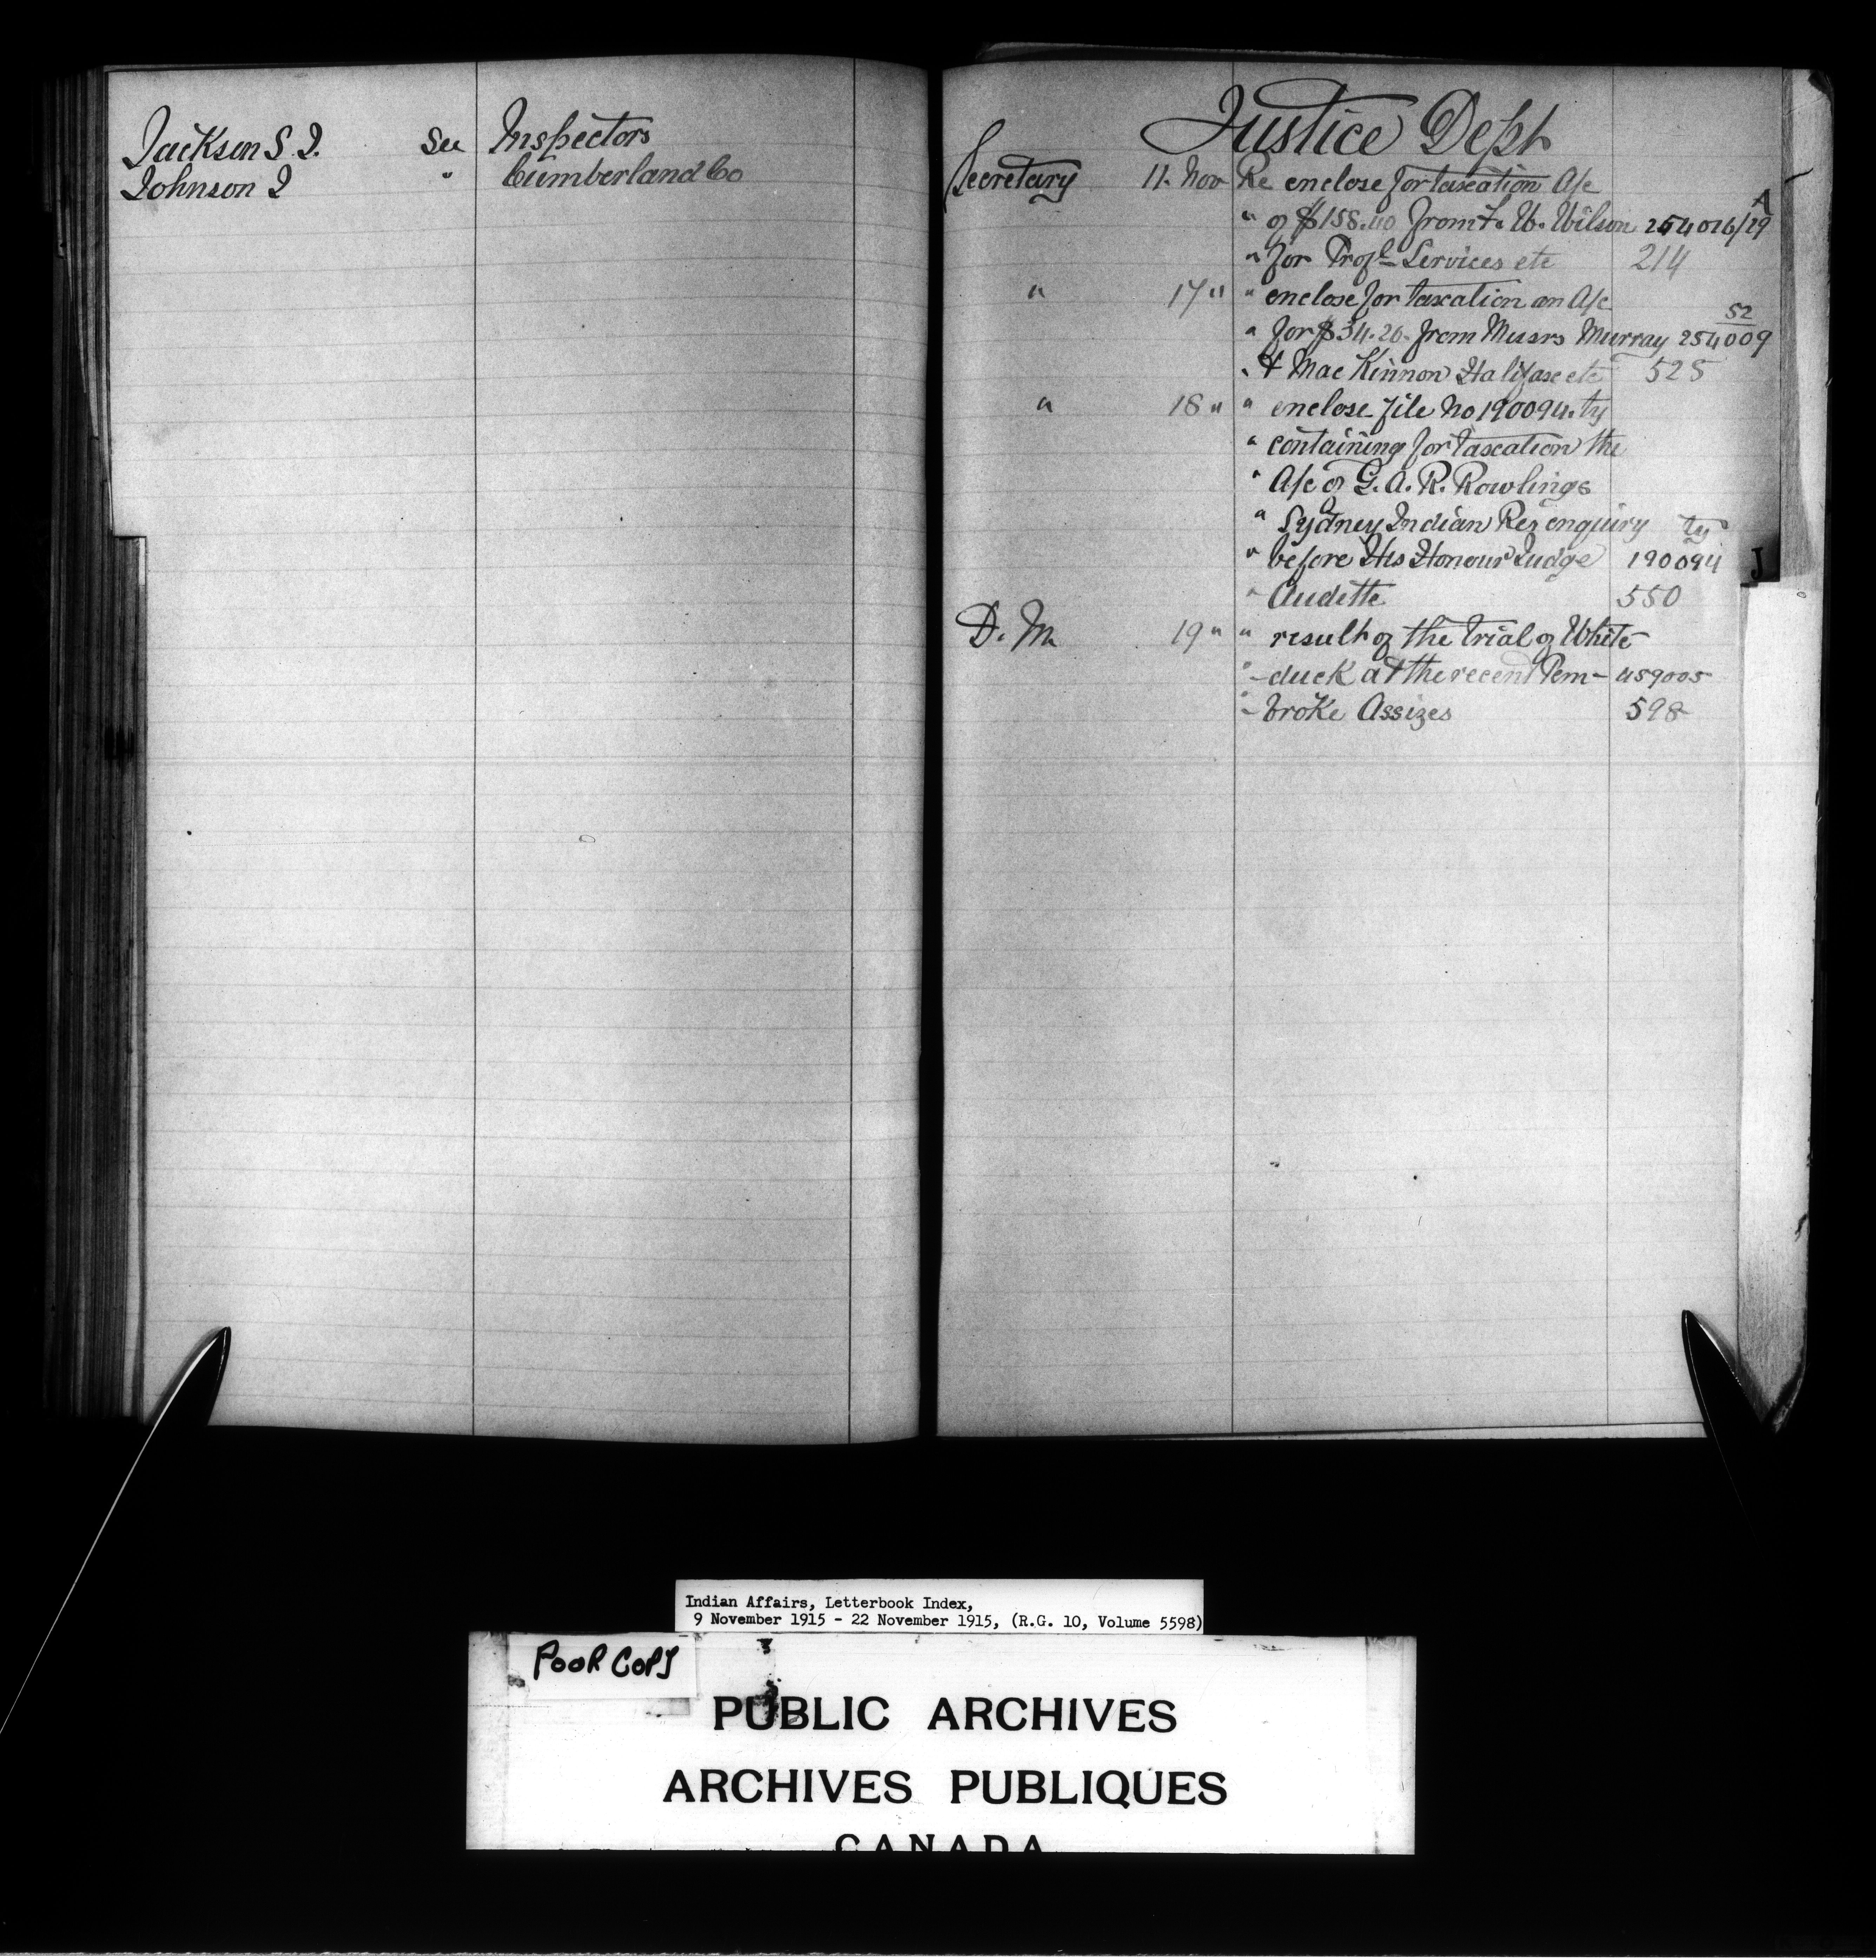 Jackson S. J. See Inspectors
Johnson J " Cumberland Co
Justice Dept
Secretary 11. Nov Re enclose for taxation A/c
" of $158.40 from F. W. Wilson 254016/29 A
" for Profl Services etc 214
" 17 " " enclose for taxation an A/c
" for $34.20. from Messrs Murray 254009 52
" & MacKinnon Halifax etc 525
" 18 " " enclose file No 190094. ty
" containing for taxation the
" A/c of G. A. R. Rowlings
" Sydney Indian Res enquiry ty
" before His Honour Judge 190094
" Audette 550
J
D. M. 19 " " result of the trial of White-
" -duck at the recent Pem- 459005
" -broke Assizes 598
Indian Affairs, Letterbook Index,
9 November 1915 - 22 November 1915, (R.G. 10, Volume 5598)
POOR COPY
PUBLIC ARCHIVES
ARCHIVES PUBLIQUES
CANADA